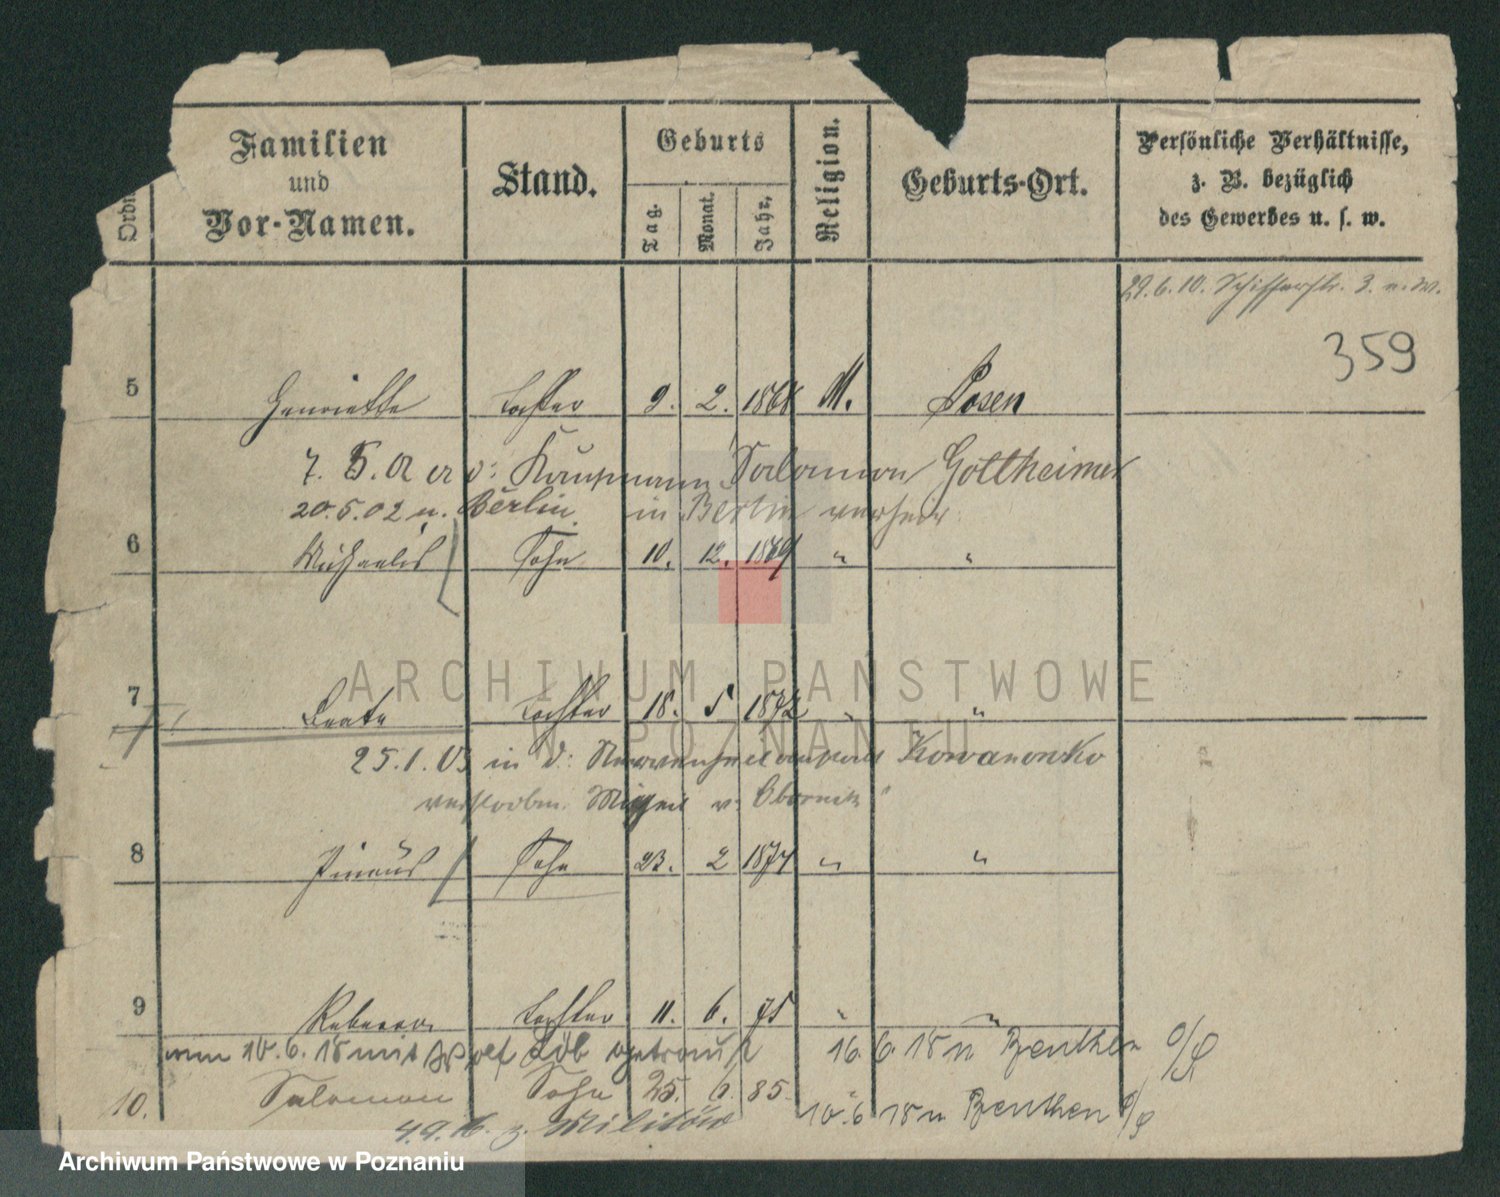 Familien
und
Vor-Namen.
Stand.
Geburts
Tag.
Monat.
Jahr.
Religion.
Geburts-Ort.
Persönliche Verhältnisse,
z. B. bezüglich
des Gewerbes u. s. w.
29.6.10. Schifferstr. 3. v. W.
359
5 Henriette Tochter 9. 2. 1868 M. Posen
Kaufmann Salomon Gottheimer
20.5.02 n. Berlin in Berlin verheir
6 Michaelis Sohn 10. 12. 1869 " "
7 Beate Tochter 18. 5 1872 " "
25.1.03 in d. Kowanowko
verstorben. v. Obornik
8 Pincus Sohn 23. 2 1874 " "
9 Rebecca Tochter 11. 6. 75 " "
am 10.6.18 mit Löb getraut 16.6.18 n Beuthen O/S
10. Salomon Sohn 25. 6. 85. "
4.9.16. z. Militär 10.6 18 n Beuthen O/S
ARCHIWUM PAŃSTWOWE
W POZNANIU
Archiwum Państwowe w Poznaniu